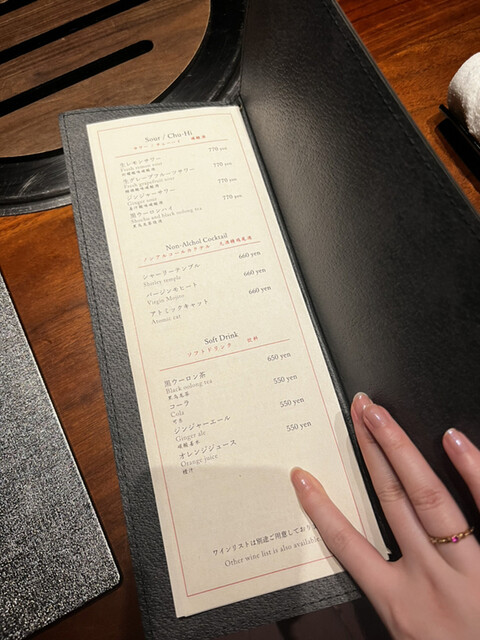 Sour / Chu-Hi
サワー / チューハイ
生レモンサワー 770 yen
Fresh lemon sour
生グレープフルーツサワー 770 yen
Fresh grapefruit sour
ジンジャーサワー 770 yen
Ginger sour
黒ウーロンハイ 770 yen
Shochu and black oolong tea
Non-Alchol Cocktail
ノンアルコールカクテル
シャーリーテンプル 660 yen
Shirley temple
バージンモヒート 660 yen
Virgin Mojito
アトミックキャット 660 yen
Atomic cat
Soft Drink
ソフトドリンク 飲料
黒ウーロン茶 650 yen
Black oolong tea
黑烏龍茶
コーラ 550 yen
Cola
可樂
ジンジャーエール 550 yen
Ginger ale
オレンジジュース 550 yen
Orange juice
橙汁
ワインリストは別途ご用意しており
Other wine list is also available